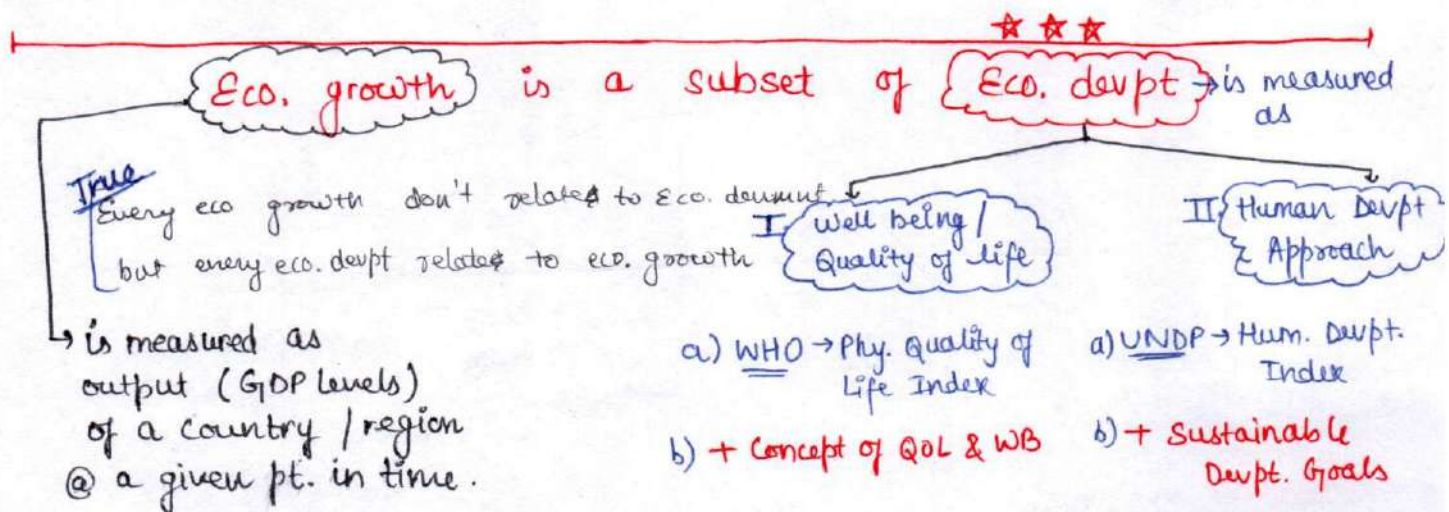 Eco. growth is a subset of Eco. devpt → is measured
as
True
Every eco growth don't relates to Eco.
but every eco. devpt relates to eco. growth
I well being /
Quality of life
II Human Devpt
Approach
↳ is measured as
output (GDP Levels)
of a country / region
@ a given pt. in time.
a) WHO → Phy. Quality of
Life Index
b) + Concept of QOL & WB
a) UNDP → Hum. Devpt.
Index
b) + Sustainable
Devpt. Goals